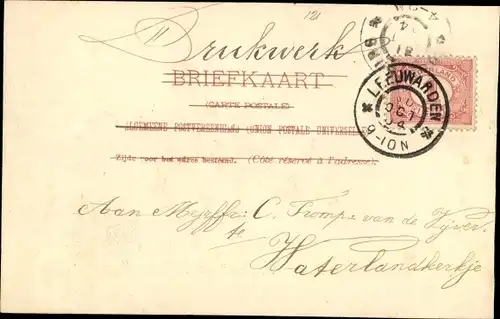 121
Drukwerk
BRIEFKAART
(CARTE POSTALE)
ALGEMEENE POSTVEREENIGING (UNION POSTALE UNIVERSELLE)
Zijde voor het adres bestemd. (Côté réservé à l'adresse).
LEEUWARDEN
6-10N
Aan Mejffr: C. Tromp van de Vijver.
te
Waterlandkerkje